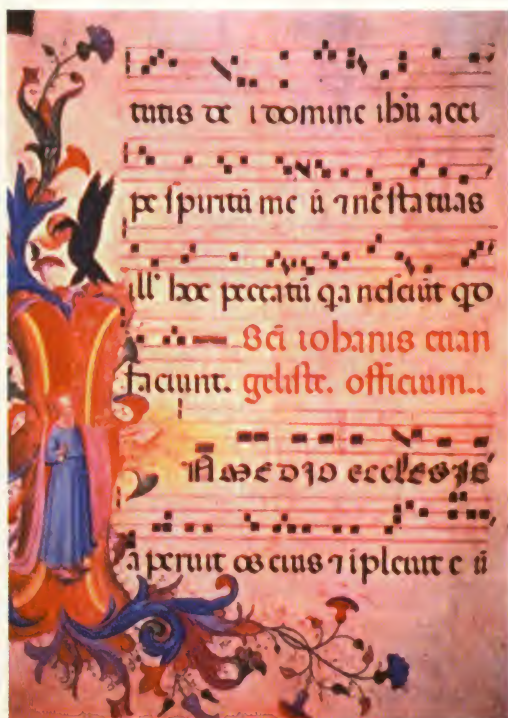 tutis dei domine ihu acci
pe spiritū me ū ⁊ ne statuas
ill' hoc peccatū q̄a nesciūt qd
Sci iohanis euan
faciunt. geliste. officium..
N MEDIO ECCLESIE
aperuit os eius ⁊ ipleuit e ū